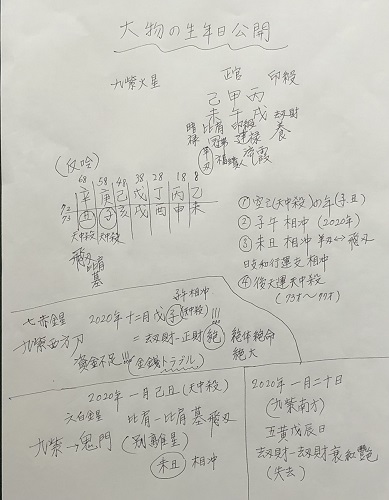 大物の生年日公開
九紫火星
正官 印殺
己甲丙
未午戌 劫財
暗禄 比肩 印綬 養
冠帯 建禄
羊刃 福貴人 流霞
(反吟)
68 58 48 38 28 18 8
辛庚己戊丁丙乙
丑子亥戌酉申未
天中殺 天中殺
飛刃 比肩
墓
① 空亡(天中殺)の年(子丑)
② 子午 相冲 (2020年)
③ 未丑 相冲 羊刃↔飛刃
日支和行運支 相冲
④ 後大運天中殺
(73才〜97才)
子午相冲
七赤金星 2020年十二月戊子(天中殺)!!!
九紫西方刀 =劫財ー正財 絶 絶体絶命
絶大
資金不足 金銭トラブル
2020年一月己丑(天中殺)
六白金星 比肩ー比肩墓飛刃
九紫→鬼門 (別離星)
未丑 相冲
2020年一月二十日
(九紫南方)
五黄戊辰日
劫財ー劫財衰紅艶
(失去)